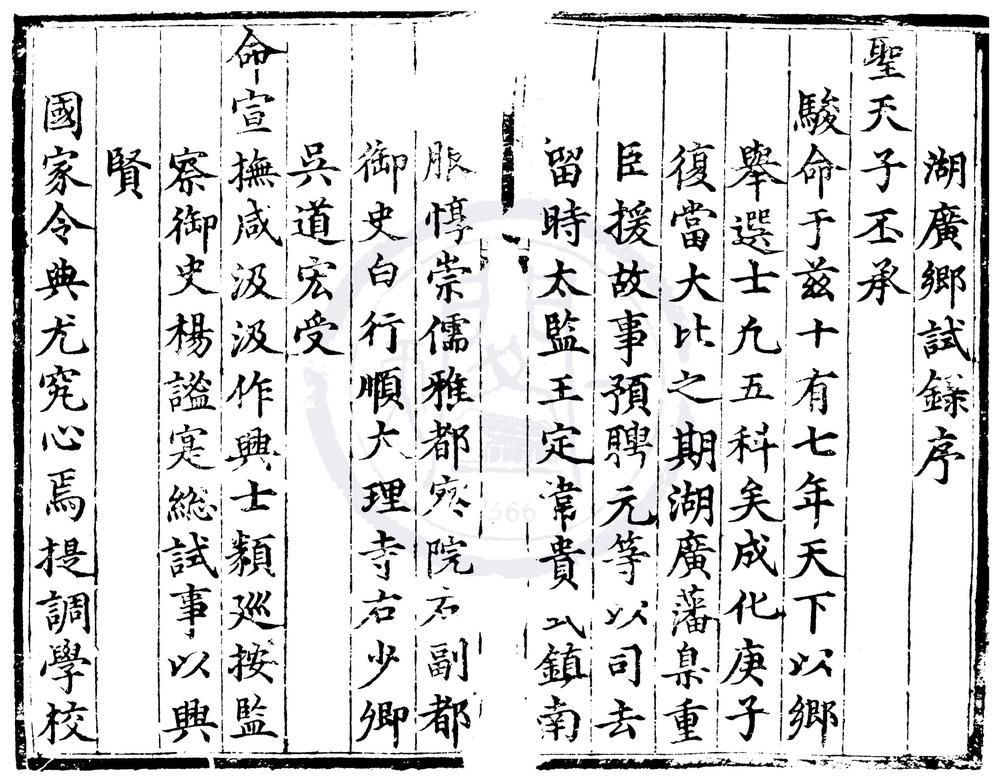 湖廣鄉試錄序
聖天子丕承
駿命于兹十有七年天下以鄉
舉選士凢五科矣成化庚子
復當大比之期湖廣藩臬重
臣援故事預聘元等以司去
留時太監王定常貴以鎮南
服惇崇儒雅都察院右副都
御史白行順大理寺右少卿
吳道宏受
命宣撫咸汲汲作興士類廵按監
察御史楊謐寔総試事以興
賢
國家令典尤究心焉提調學校